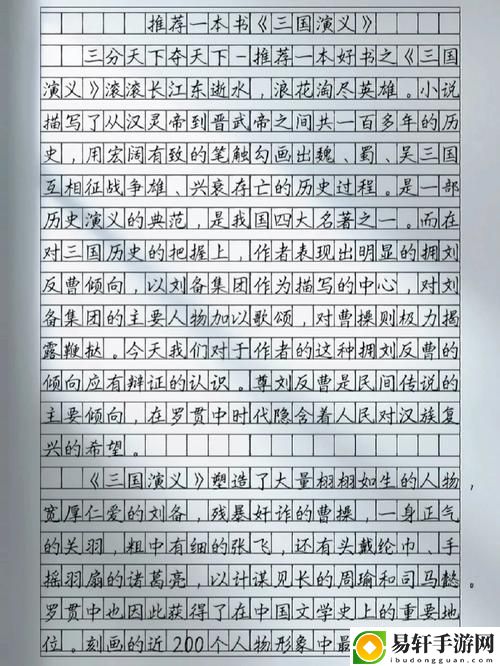 推荐一本书《三国演义》
三分天下夺天下-推荐一本好书之《三国
演义》滚滚长江东逝水,浪花淘尽英雄。小说
描写了从汉灵帝到晋武帝之间共一百多年的历
史,用宏阔有致的笔触勾画出魏、蜀、吴三国
互相征战争雄、兴衰存亡的历史过程。是一部
历史演义的典范,是我国四大名著之一。而在
对三国历史的把握上,作者表现出明显的拥刘
反曹倾向,以刘备集团作为描写的中心,对刘
备集团的主要人物加以歌颂,对曹操则极力揭
露鞭挞。今天我们对于作者的这种拥刘反曹的
倾向应有辩证的认识。尊刘反曹是民间传说的
主要倾向,在罗贯中时代隐含着人民对汉族复
兴的希望。
《三国演义》塑造了大量栩栩如生的人物,
宽厚仁爱的刘备,残暴奸诈的曹操,一身正气
的关羽,粗中有细的张飞,还有头戴纶巾、手
摇羽扇的诸葛亮,以计谋见长的周瑜和司马懿。
罗贯中也因此获得了在中国文学史上的重要地
位。刻画的近200个人物形象中最
易轩手游网
ibudongguoji.com